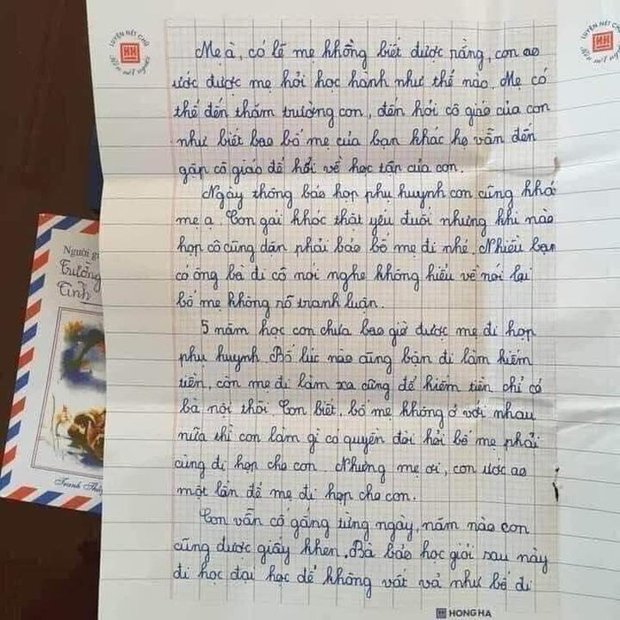 LUYỆN NÉT CHỮ
Rèn nết người
LUYỆN NÉT CHỮ
Rèn nết người
Mẹ à, có lẽ mẹ không biết được rằng, con ao
ước được mẹ hỏi học hành như thế nào. Mẹ có
thể đến thăm trường con, đến hỏi cô giáo của con
như biết bao bố mẹ của bạn khác họ vẫn đến
gặp cô giáo để hỏi về học tập của con.
Ngày thông báo họp phụ huynh con cũng khó
mẹ ạ. Con gái khóc thật yếu đuối nhưng khi nào
họp cô cũng dặn phải bảo bố mẹ đi nhé. Nhiều bạn
có ông bà đi cô mới nghe không hiểu về nói lại
bố mẹ không rõ tranh luận.
5 năm học con chưa bao giờ được mẹ đi họp
phụ huynh. Bố lúc nào cũng bận đi làm kiếm
tiền, còn mẹ đi làm xa cũng để kiếm tiền chỉ có
bà nội thôi. Con biết, bố mẹ không ở với nhau
nữa thì con làm gì có quyền đòi hỏi bố mẹ phải
cùng đi họp cho con. Nhưng mẹ ơi, con ước ao
một lần để mẹ đi họp cho con.
Con vẫn cố gắng từng ngày, năm nào con
cũng được giấy khen. Bà bảo học giỏi sau này
đi học đại học để không vất vả như bố đi
HONG HA
Người gi
Trường
Tình
Tranh Thủy